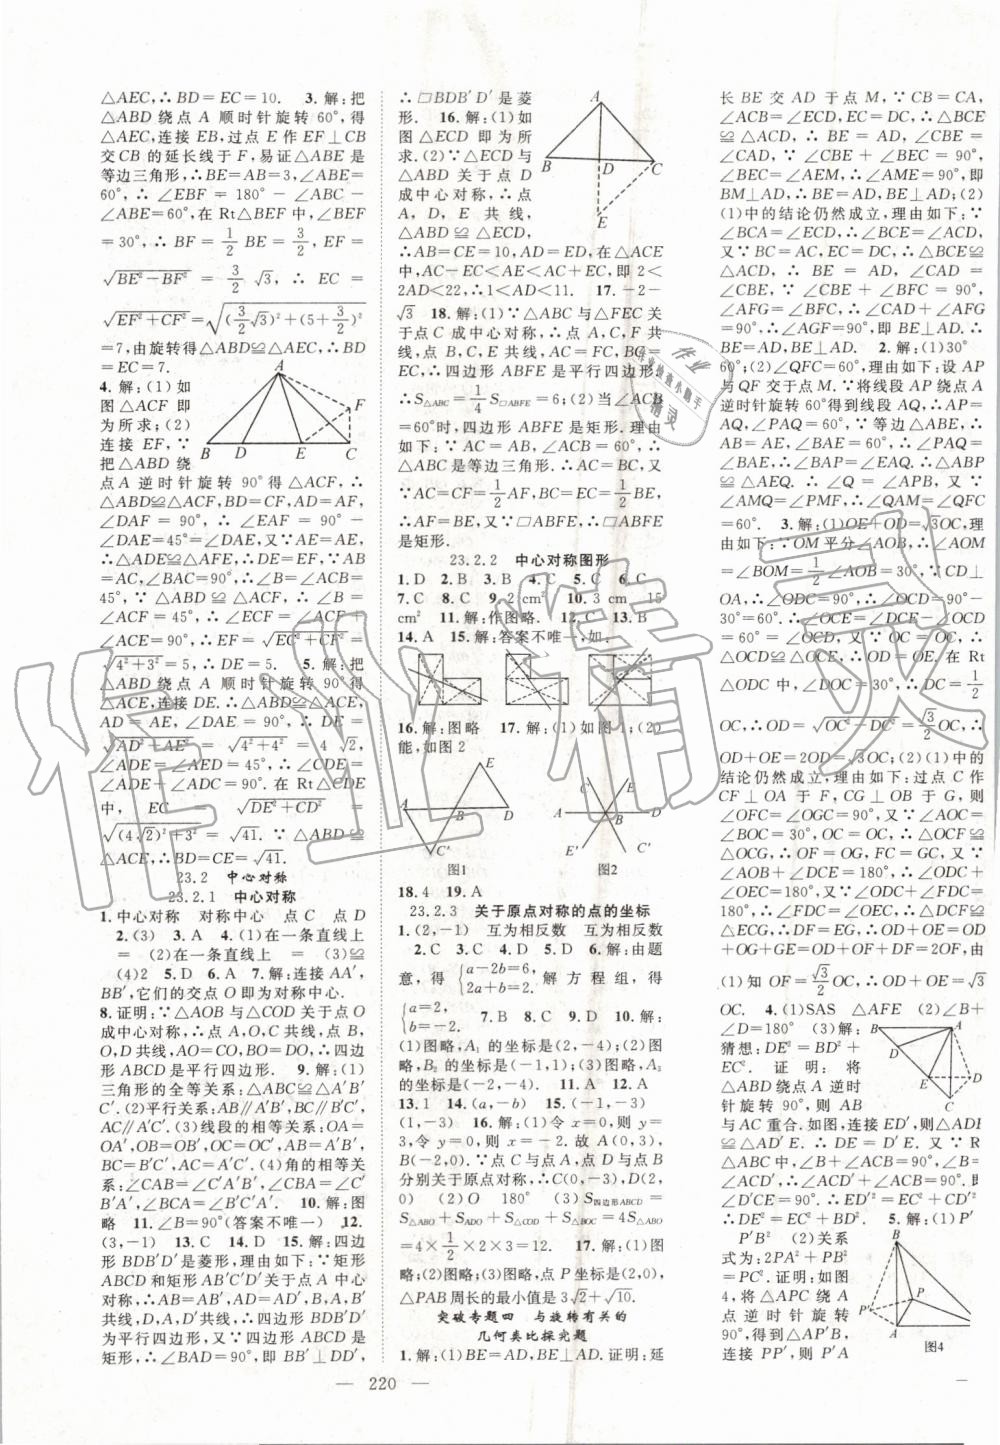 △AEC,∴BD=EC=10. 3.解:把
△ABD绕点A顺时针旋转60°,得
△AEC,连接EB,过点E作EF⊥CB
交CB的延长线于F,易证△ABE是
等边三角形,∴BE=AB=3,∠ABE=
60°,∴∠EBF=180°-∠ABC-
∠ABE=60°,在Rt△BEF中,∠BEF
=30°,∴BF=1/2BE=3/2,EF=
√(BE²-BF²)=3/2√3,∴EC=
√(EF²+CF²)=√((3/2√3)²+(5+3/2)²)
=7,由旋转得△ABD≌△AEC,∴BD
=EC=7.
4.解:(1)如
图△ACF即
为所求;(2)
连接EF,∵
把△ABD绕
点A逆时针旋转90°得△ACF,∴
△ABD≌△ACF,BD=CF,AD=AF,
∠DAF=90°,∴∠EAF=90°-
∠DAE=45°=∠DAE,又∵AE=AE,
∴△ADE≌△AFE,∴DE=EF,∵AB
=AC,∠BAC=90°,∴∠B=∠ACB=
45°,∵△ABD≌△ACF,∴∠B=
∠ACF=45°,∴∠ECF=∠ACB+
∠ACE=90°,∴EF=√(EC²+CF²)=
√(4²+3²)=5,∴DE=5. 5.解:把
△ABD绕点A顺时针旋转90°得
△ACE,连接DE.∴△ABD≌△ACE,
AD=AE,∠DAE=90°,∴DE=
√(AD²+AE²)=√(4²+4²)=4√2,
∠ADE=∠AED=45°,∴∠CDE=
∠ADE+∠ADC=90°,在Rt△CDE
中,EC=√(DE²+CD²)=
√((4√2)²+3²)=√41.∵△ABD≌
△ACE,∴BD=CE=√41.
23.2 中心对称
23.2.1 中心对称
1.中心对称 对称中心 点C 点D
2.(3) 3.A 4.(1)在一条直线上
= (2)在一条直线上 = (3)≌
(4)2 5.D 6.A 7.解:连接AA′,
BB′,它们的交点O即为对称中心.
8.证明:∵△AOB与△COD关于点O
成中心对称,∴点A,O,C共线,点B,
O,D共线,OA=OC,OB=OD,∴四边
形ABCD是平行四边形. 9.解:(1)
三角形的全等关系:△ABC≌△A′B′
C′.(2)平行关系:AB∥A′B′,BC∥B′C′,
AC∥A′C′.(3)线段的相等关系:OA=
OA′,OB=OB′,OC=OC′,AB=A′B′,
BC=B′C′,AC=A′C′.(4)角的相等关
系:∠CAB=∠C′A′B′,∠CBA=∠C′B′
A′,∠BCA=∠B′C′A′. 10.解:图
略 11.∠B=90°(答案不唯一) 12.
(3,-1) 13.C 14.D 15.解:四边
形BDB′D′是菱形,理由如下:∵矩形
ABCD和矩形AB′C′D′关于点A中心
对称,∴AB=AB′,AD=AD′,B,A,B′
共线,D,A,D′共线,∴四边形BDB′D′
是平行四边形,又∵四边形ABCD是
矩形,∴∠BAD=90°,即BB′⊥DD′,
∴□BDB′D′是菱
形. 16.解:(1)如
图△ECD即为所
求.(2)∵△ECD与
△ABD关于点D
成中心对称,∴点
A,D,E共线,
△ABD≌△ECD,
∴AB=CE=10,AD=ED,在△ACE
中,AC-EC<AE<AC+EC,即2<
2AD<22,∴1<AD<11. 17.-2-
√3 18.解:(1)∵△ABC与△FEC关
于点C成中心对称,∴点A,C,F共
线,点B,C,E共线,AC=FC,BC=
EC,∴四边形ABFE是平行四边形.
∴S△ABC=1/4S□ABFE=6;(2)当∠ACB
=60°时,四边形ABFE是矩形.理由
如下:∵AC=AB,∠ACB=60°,
∴△ABC是等边三角形,∴AC=BC,又
∵AC=CF=1/2AF,BC=EC=1/2BE,
∴AF=BE,又∵□ABFE,∴□ABFE
是矩形.
23.2.2 中心对称图形
1.D 2.B 3.B 4.C 5.C 6.C
7.C 8.C 9.2 cm² 10.3 cm 15
cm² 11.解:作图略. 12.D 13.B
14.A 15.解:答案不唯一,如:
16.解:图略 17.解:(1)如图1;(2)
能,如图2
图1 图2
18.4 19.A
23.2.3 关于原点对称的点的坐标
1.(2,-1) 互为相反数 互为相反数
2.C 3.C 4.D 5.D 6.解:由题
意,得{a-2b=6, 2a+b=2. 解方程组,得
{a=2, b=-2. 7.B 8.C 9.D 10.解:
(1)图略,A₁的坐标是(2,-4);(2)图
略,B₂的坐标是(-1,1);(3)图略,A₃
的坐标是(-2,-4). 11.A 12.A
13.1 14.(a,-b) 15.(-1,-3)
(1,-3) 16.解:(1)令x=0,则y=
3,令y=0,则x=-2.故A(0,3),
B(-2,0).∵点C与点A,点D与点B
分别关于原点对称,∴C(0,-3),D(2,
0) (2)O 180° (3)S四边形ABCD=
S△ABO+S△ADO+S△COD+S△BOC=4S△ABO
=4×1/2×2×3=12. 17.解:(1)图
略;(2)图略;(3)图略,点P坐标是(2,0),
△PAB周长的最小值是3√2+√10.
突破专题四 与旋转有关的
几何类比探究题
1.解:(1)BE=AD,BE⊥AD.证明:延
长BE交AD于点M,∵CB=CA,
∠ACB=∠ECD,EC=DC,∴△BCE
≌△ACD,∴BE=AD,∠CBE=
∠CAD,∵∠CBE+∠BEC=90°,
∠BEC=∠AEM,∴∠AME=90°,即
BM⊥AD,∴BE=AD,BE⊥AD;(2)
(1)中的结论仍然成立,理由如下:∵
∠BCA=∠ECD,∴∠BCE=∠ACD,
又∵BC=AC,EC=DC,∴△BCE≌
△ACD,∴BE=AD,∠CAD=
∠CBE,∵∠CBE+∠BFC=90°,
∠AFG=∠BFC,∴∠CAD+∠AFG=
90°,∴∠AGF=90°,即BE⊥AD.∴BE
=AD,BE⊥AD. 2.解:(1)30°
60°;(2)∠QFC=60°,理由如下:设AP
与QF交于点M,∵将线段AP绕点A
逆时针旋转60°得到线段AQ,∴AP=
AQ,∠PAQ=60°,∵等边△ABE,
∴AB=AE,∠BAE=60°,∴∠PAQ=
∠BAE,∴∠BAP=∠EAQ.∴△ABP
≌△AEQ.∴∠Q=∠APB,又∵
∠AMQ=∠PMF,∴∠QAM=∠QFC
=60°. 3.解:(1)OE+OD=√3OC,理
由如下:∵OM平分∠AOB,∴∠AOM
=∠BOM=1/2∠AOB=30°,∵CD⊥
OA,∴∠ODC=90°,∴∠OCD=60°,
∴∠OCE=∠DCE-∠OCD=60°,
∴∠OCD=∠OCE.又∵OC=OC,∴
△OCD≌△OCE,∴OD=OE.在Rt
△ODC中,∠DOC=30°,∴DC=1/2
OC,∴OD=√(OC²-DC²)=√3/2OC,∴
OD+OE=2OD=√3OC;(2)(1)中的
结论仍然成立,理由如下:过点C作
CF⊥OA于F,CG⊥OB于G,则
∠OFC=∠OGC=90°,又∵∠AOC=
∠BOC=30°,OC=OC,∴△OFC≌
△OGC,∴OF=OG,CF=CG.又∵
∠AOB+∠DCE=180°,∴∠ODC+
∠OEC=180°,又∵∠ODC+∠CDF=
180°,∴∠CDF=∠OEC,∴△CFD≌
△CGE,∴DF=EG,∴OD+OE=OD
+OG+GE=OD+OF+DF=2OF,由
(1)知OF=√3/2OC,∴OD+OE=√3
OC. 4.(1)SAS △AFE (2)∠B+
∠D=180° (3)解:
猜想:DE²=BD²+
EC². 证明:将
△ABD绕点A逆时
针旋转90°,则AB
与AC重合.如图,连接ED′,则△ABD
≌△ACD′.∴DE=D′E.又∵Rt
△ABC中,∠B+∠ACB=90°,∴∠ACB+
∠ACD′,∴∠ACD′+∠ACB=90°,即
∠D′CE=90°,∴D′E²=D′C²+EC²,
∴DE²=BD²+EC². 5.解:(1)P′
P′B² (2)关系
式为:2PA²+PB²
=PC².证明:如图
4,将△APC绕点
A逆时针旋转
90°,得到△AP′B,
连接PP′,则△APC
图4
220